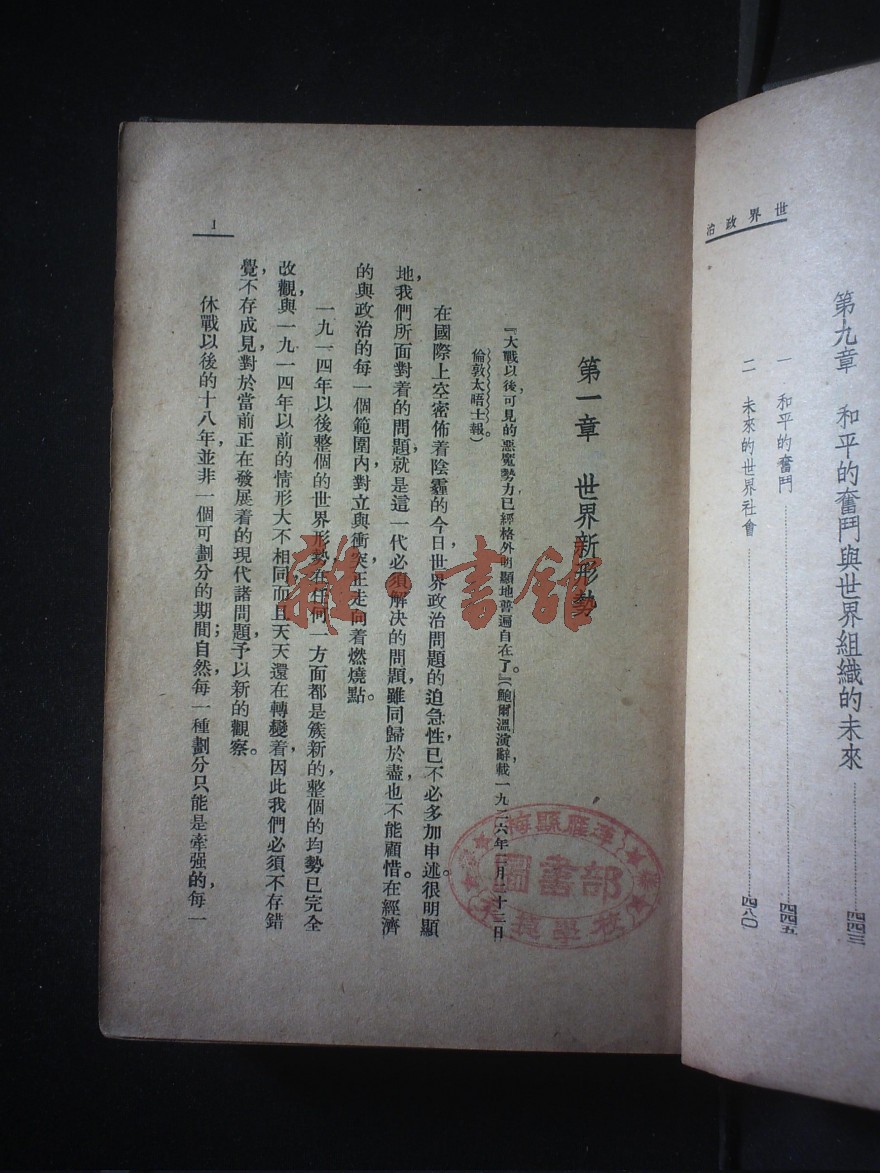 世界政治
第九章 和平的奮鬥與世界組織的未來 四四三
一 和平的奮鬥 四四五
二 未來的世界社會 四八〇
第一章 世界新形勢
『大戰以後，可見的惡魔勢力已經格外明顯地普遍自在了。』（鮑爾溫演辭，載一九二六年二月二十三日
倫敦太晤士報）。
在國際上空密佈着陰霾的今日，世界政治問題的迫急性，已不必多加申述。很明顯
地，我們所面對着的問題，就是這一代必須解决的問題，雖同歸於盡，也不能顧惜。在經濟
的與政治的每一個範圍內，對立與衝突正走向着燃燒點。
一九一四年以後整個的世界形勢，在任何一方面都是簇新的，整個的均勢已完全
改觀，與一九一四年以前的情形大不相同，而且天天還在轉變着，因此我們必須不存錯
覺，不存成見，對於當前正在發展着的現代諸問題，予以新的觀察。
休戰以後的十八年，並非一個可劃分的期間；自然，每一種劃分只能是牽强的，每一
1
雜·書館
圖書部